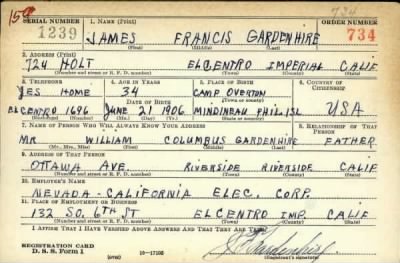 150 734
SERIAL NUMBER 1. NAME (Print) ORDER NUMBER
1239 JAMES FRANCIS GARDENHIRE 734
(First) (Middle) (Last)
2. ADDRESS (Print)
724 HOLT ELCENTRO IMPERIAL CALIF
(Number and street or R. F. D. number) (Town) (County) (State)
3. TELEPHONE 4. AGE IN YEARS 5. PLACE OF BIRTH 6. COUNTRY OF CITIZENSHIP
YES HOME 34 CAMP OVERTON
DATE OF BIRTH (Town or county)
ELCENTRO 1696 JUNE 21 1906 MINDINEAU PHIL.ISL USA
(Exchange) (Number) (Mo.) (Day) (Yr.) (State or country)
7. NAME OF PERSON WHO WILL ALWAYS KNOW YOUR ADDRESS 8. RELATIONSHIP OF THAT PERSON
MR WILLIAM COLUMBUS GARDENHIRE FATHER
(Mr., Mrs., Miss) (First) (Middle) (Last)
9. ADDRESS OF THAT PERSON
OTTAWA AVE. RIVERSIDE RIVERSIDE CALIF
(Number and street or R. F. D. number) (Town) (County) (State)
10. EMPLOYER'S NAME
NEVADA-CALIFORNIA ELEC. CORP.
11. PLACE OF EMPLOYMENT OR BUSINESS
132 SO. 6TH ST ELCENTRO IMP. CALIF
(Number and street or R. F. D. number) (Town) (County) (State)
I AFFIRM THAT I HAVE VERIFIED ABOVE ANSWERS AND THAT THEY ARE TRUE.
REGISTRATION CARD
D. S. S. Form 1 16—17105 Gardenhire
(Registrant's signature)